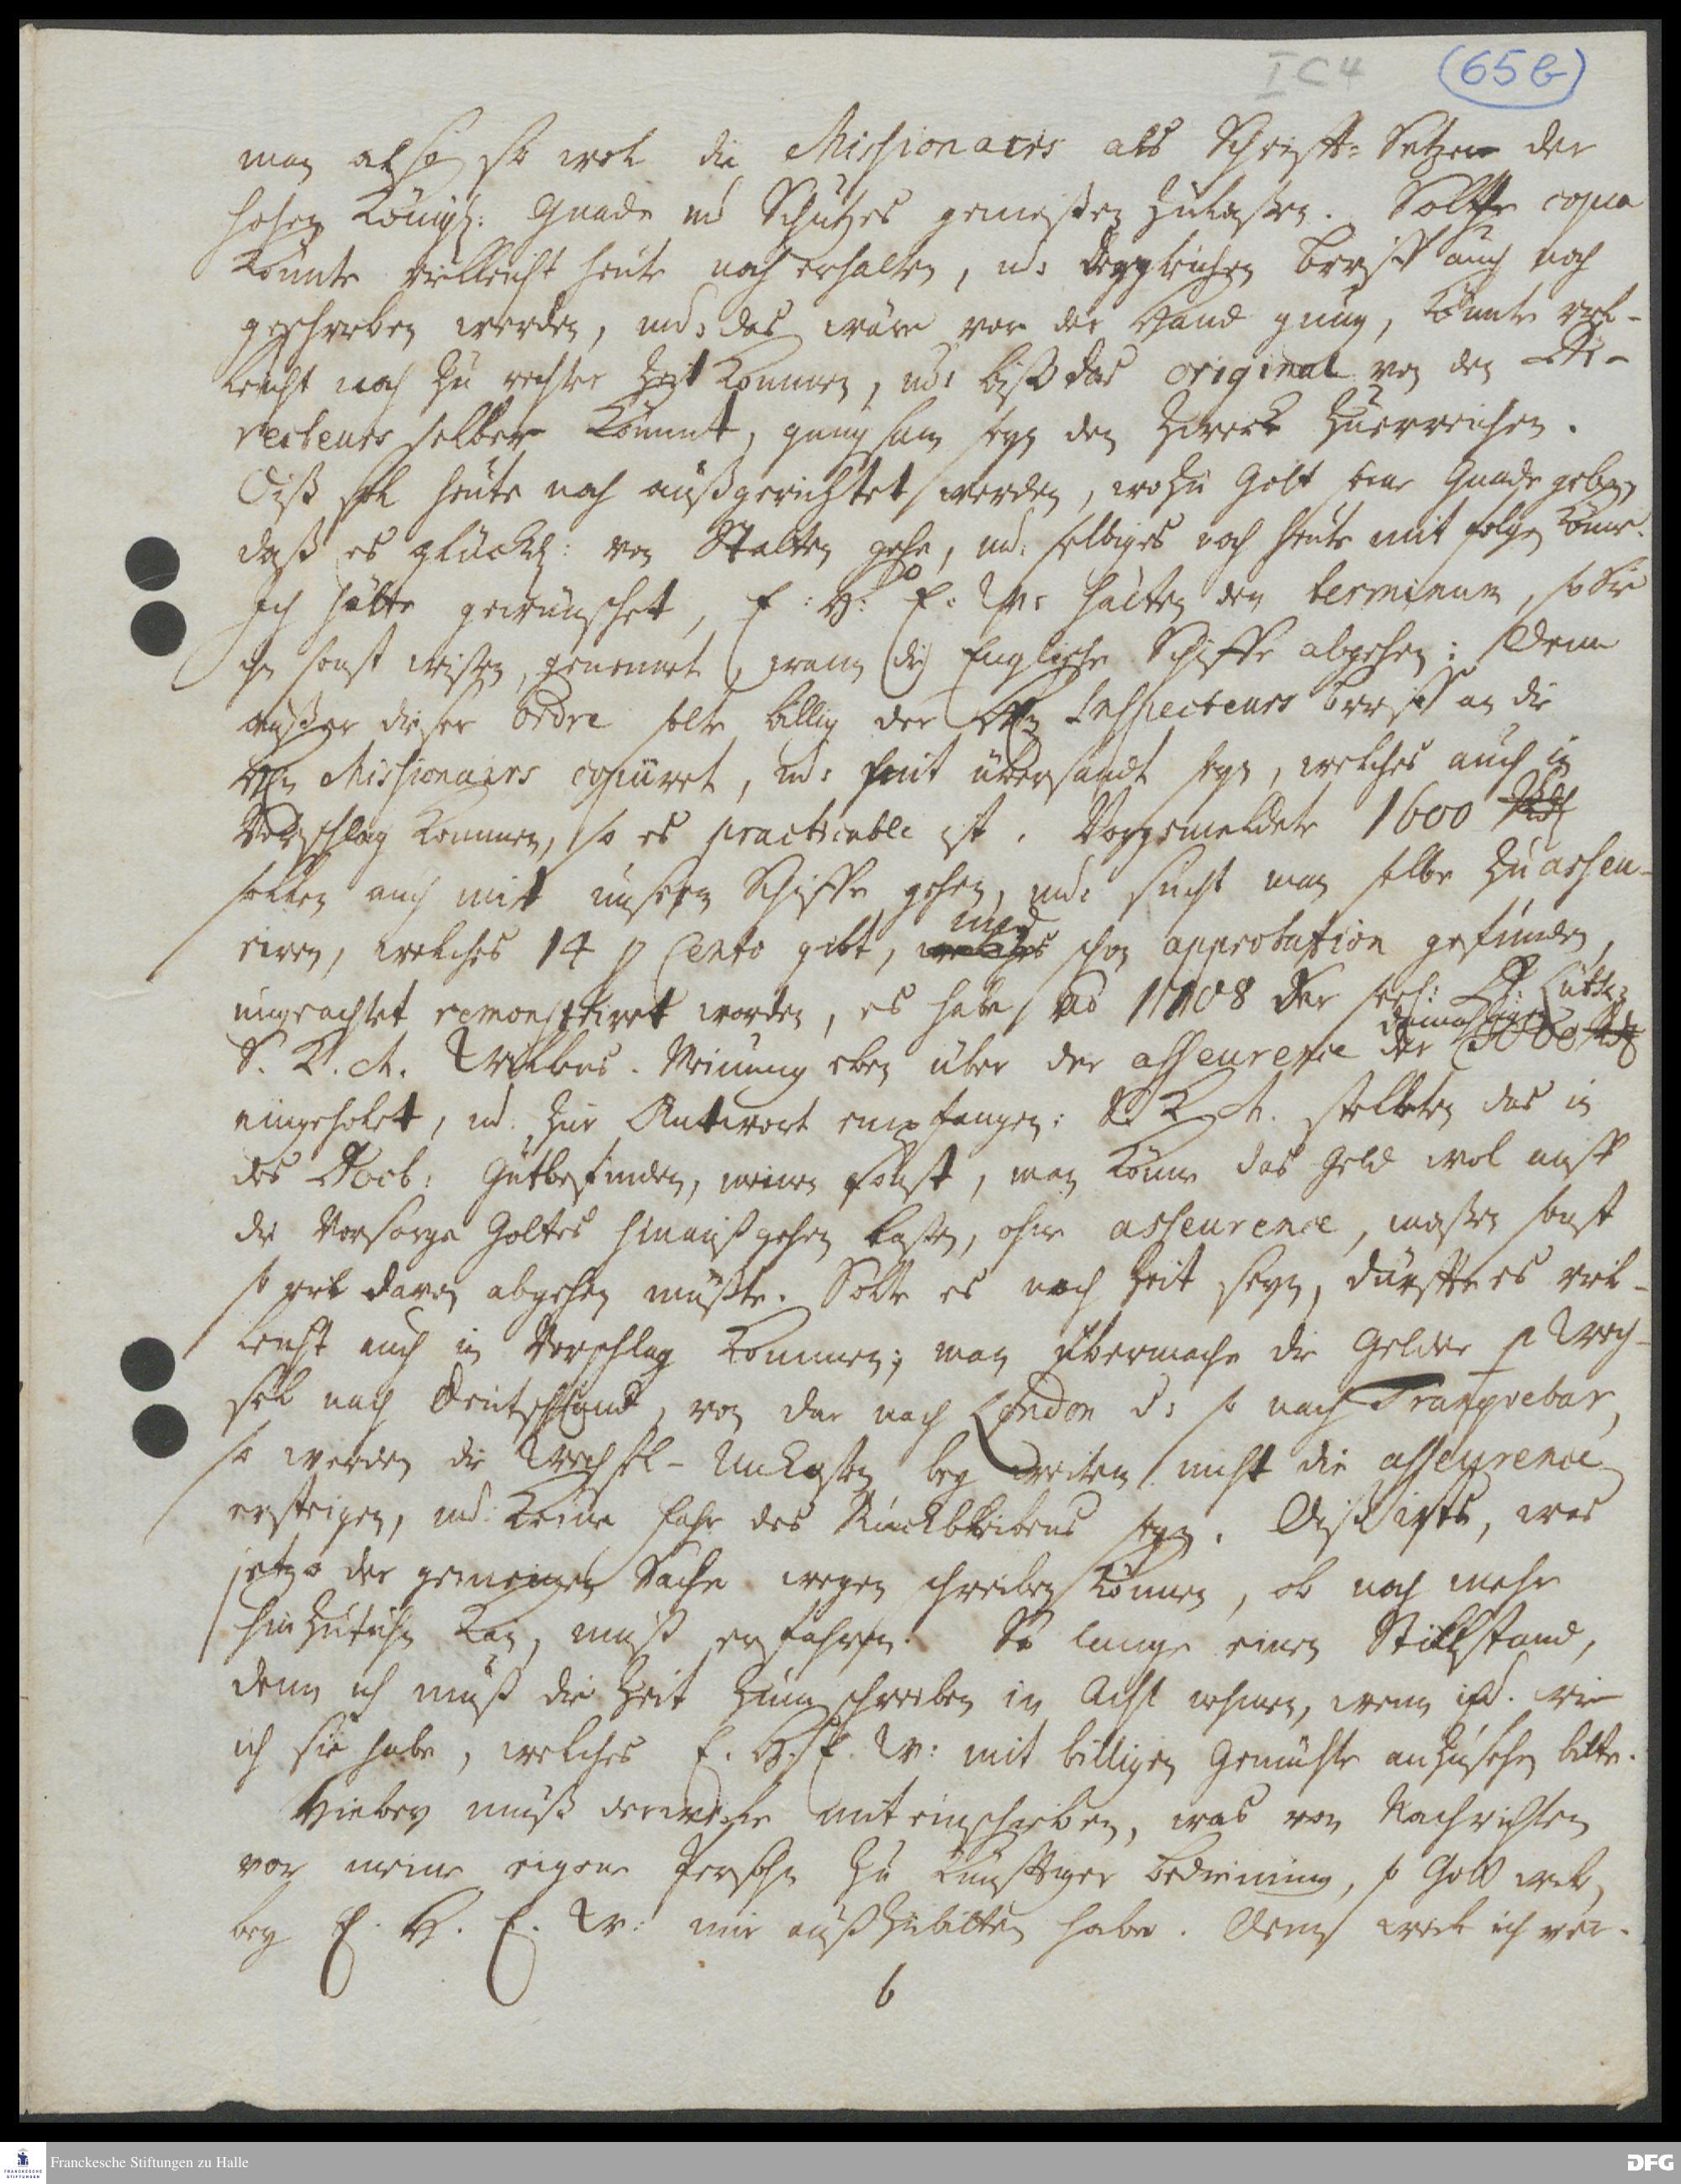 I C 4 (65b)
man also so wol die Missionaris als Schrifft-Setzer der
hohen Königl: Gnade und Schutzes geniessen zulassen. Solche copia
könte vielleicht heute noch erhalten, u: dergleichen brieff auch noch
geschrieben werden, und: das wäre vor der Hand gnug, könte viel-
leicht noch zu rechter Zeit kommen, u: biß das original von den Di-
recteurs selber kömmt, gnugsam seyn den Zweck zuerreichen.
Diß sol heute noch außgerichtet werden, wozu Gott seine Gnade gebe,
daß es glückl: von Statten gehe, und: selbiges noch heute mit folgen könne.
Ich hätte gewünschet, E: H: E: W: hätten den terminum, so Sie
ihn sonst wissen, genennet, wann die Englische Schiffe abgehen: Denn
ausser dieser ordre solte billig der HEn Inspecteurs brieff an die
HEn Missionairs copiiret, und: mit übersandt seyn, welches auch in
Vorschlag kommen, so es practicable ist. Vorgemeldete 1600 Rthl
sollen auch mit unserm Schiffe gehen, und: sucht man selbe zu asseu-
riren, welches 14 p Cento gibt, welches und schon approbation gefunden,
ungeachtet remonstriret worden, es habe Ao 1708 der seel: D. Lütk:
S. K. M. Willens-Meinung eben über der asseurence der damahligen Rthl
eingeholet, u. zur Antwort empfangen: S. K. M. stelleten das in
des Doct: Gutbefinden, meinen sonst, man könne das Geld wol auff
die Vorsorge Gottes hinaußgehen lassen, ohne asseurence, massen sonst
so viel davon abgehen müßte. Solte es noch Zeit seyn, dürffte es viel-
leicht auch in Vorschlag kommen; man übermache die Gelder p Wech-
sel nach Deutschland, von dar nach London u: so nach Tranquebar,
so werden die Wechsel-Unkosten bey weiten nicht die asseurence
ersteigen, und: keine fahr des Rückbleibens seyn. Diß ists, was
jetzo der gemeinen Sache wegen schreiben können, ob noch mehr
hinzuthun kan, muß erfahren. So lange einen Stillstand,
denn ich muß die Zeit zum schreiben in Acht nehmen, wenn und. wie
ich sie habe, welches E. H. E. W: mit billigen Gemühte anzusehen bitte.
Hiebey muß derweile mit einschreiben, was von Nachrichten
vor meine eigene Persohn zu künfftiger bedienung, so Gott will,
bey E. H. E. W: mir außzubitten habe. Denn weil ich ver-
6
Franckesche Stiftungen zu Halle
FRANCKESCHE STIFTUNGEN
DFG